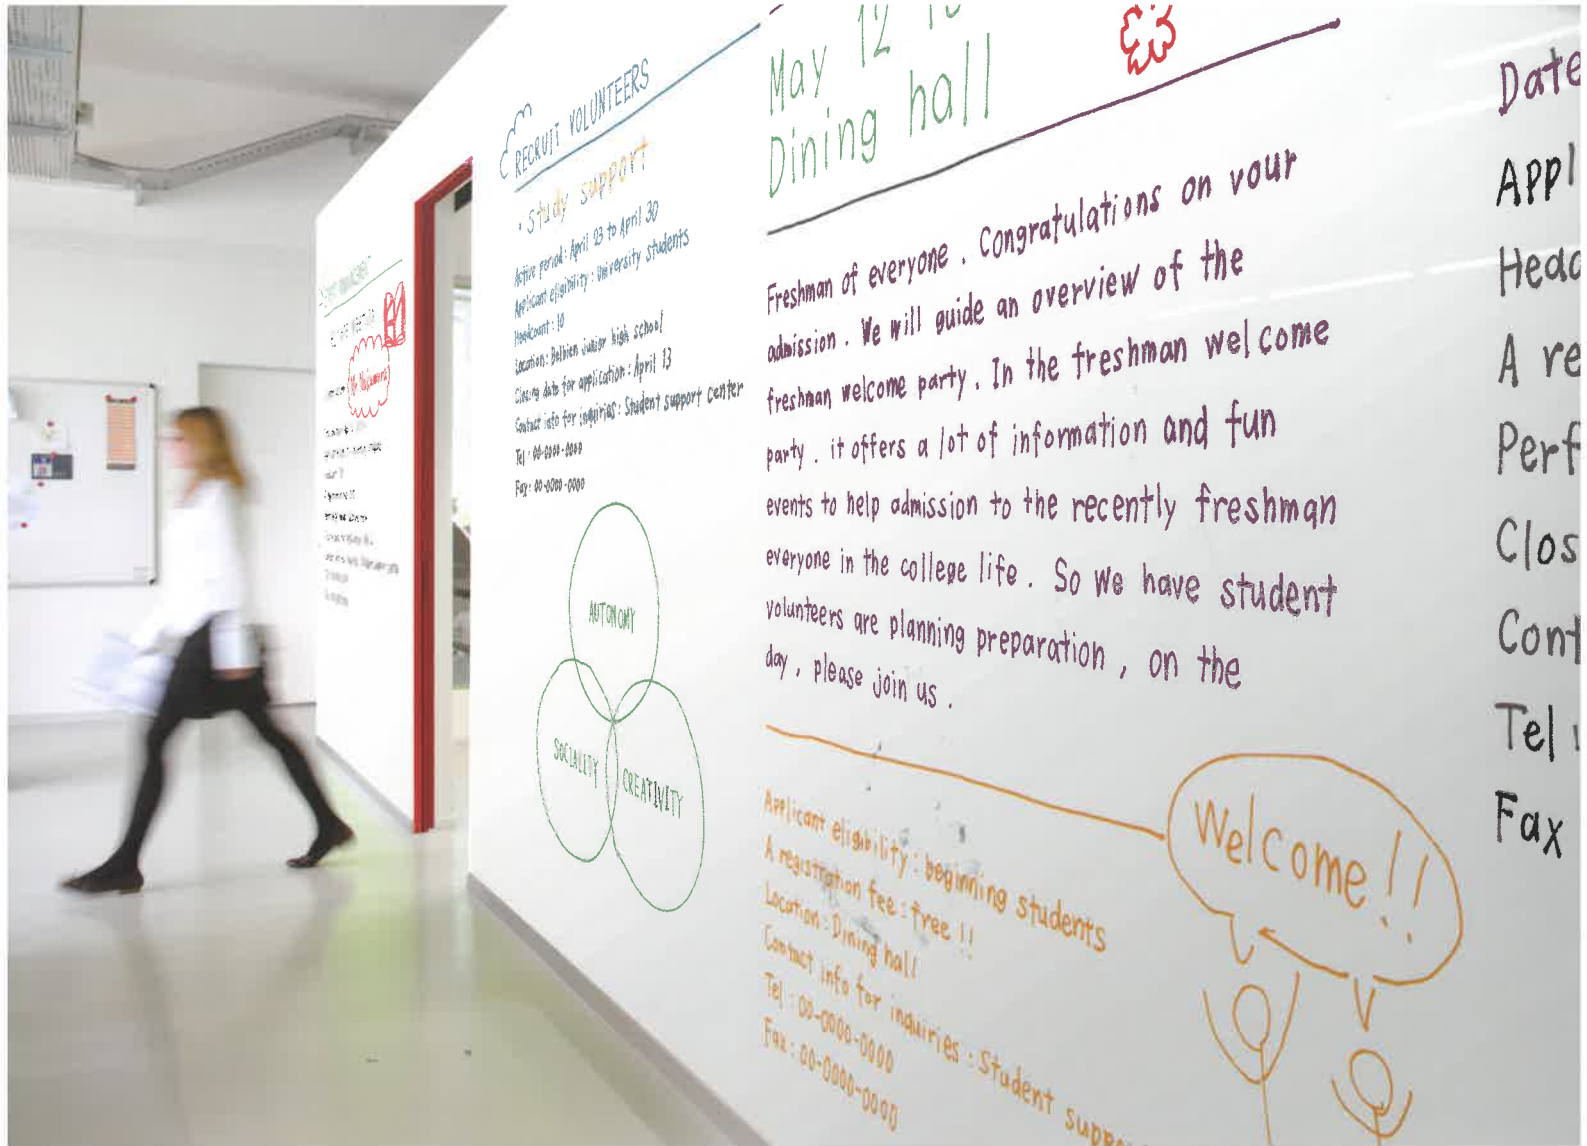 RECRUIT VOLUNTEERS
· Study support
Active period : April 23 to April 30
Applicant eligibility : University students
Headcount : 10
Location : Belbien junior high school
Closing date for application : April 13
Contact info for inquiries : Student support center
Tel : 00-0000-0000
Fax : 00-0000-0000
AUTONOMY
SOCIALITY
CREATIVITY
May 12
Dining hall
Freshman of everyone . Congratulations on your
admission . We will guide an overview of the
freshman welcome party . In the freshman welcome
party . it offers a lot of information and fun
events to help admission to the recently freshman
everyone in the college life . So We have student
volunteers are planning preparation , on the
day , please join us .
Applicant eligibility : beginning students
A registration fee : free !!
Location : Dining hall
Contact info for inquiries : Student suppor
Tel : 00-0000-0000
Fax : 00-0000-0000
Welcome !!
Date
Appl
Head
A re
Perf
Clos
Cont
Tel
Fax